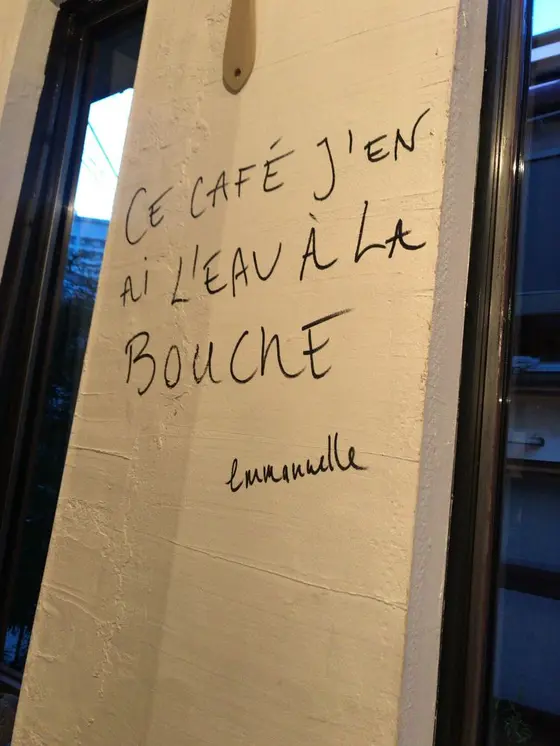 CE CAFÉ J'EN
AI L'EAU À LA
BOUCHE
emmanuelle